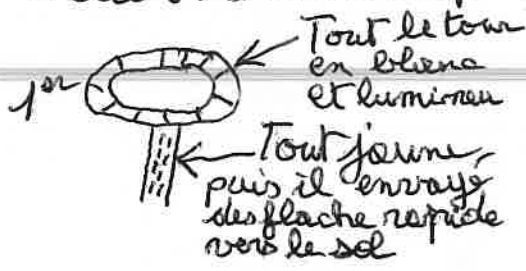 Tout le tour
en blanc
et lumineu
1er
Tout jaune,
puis il envoyé
des flache rapide
vers le sol